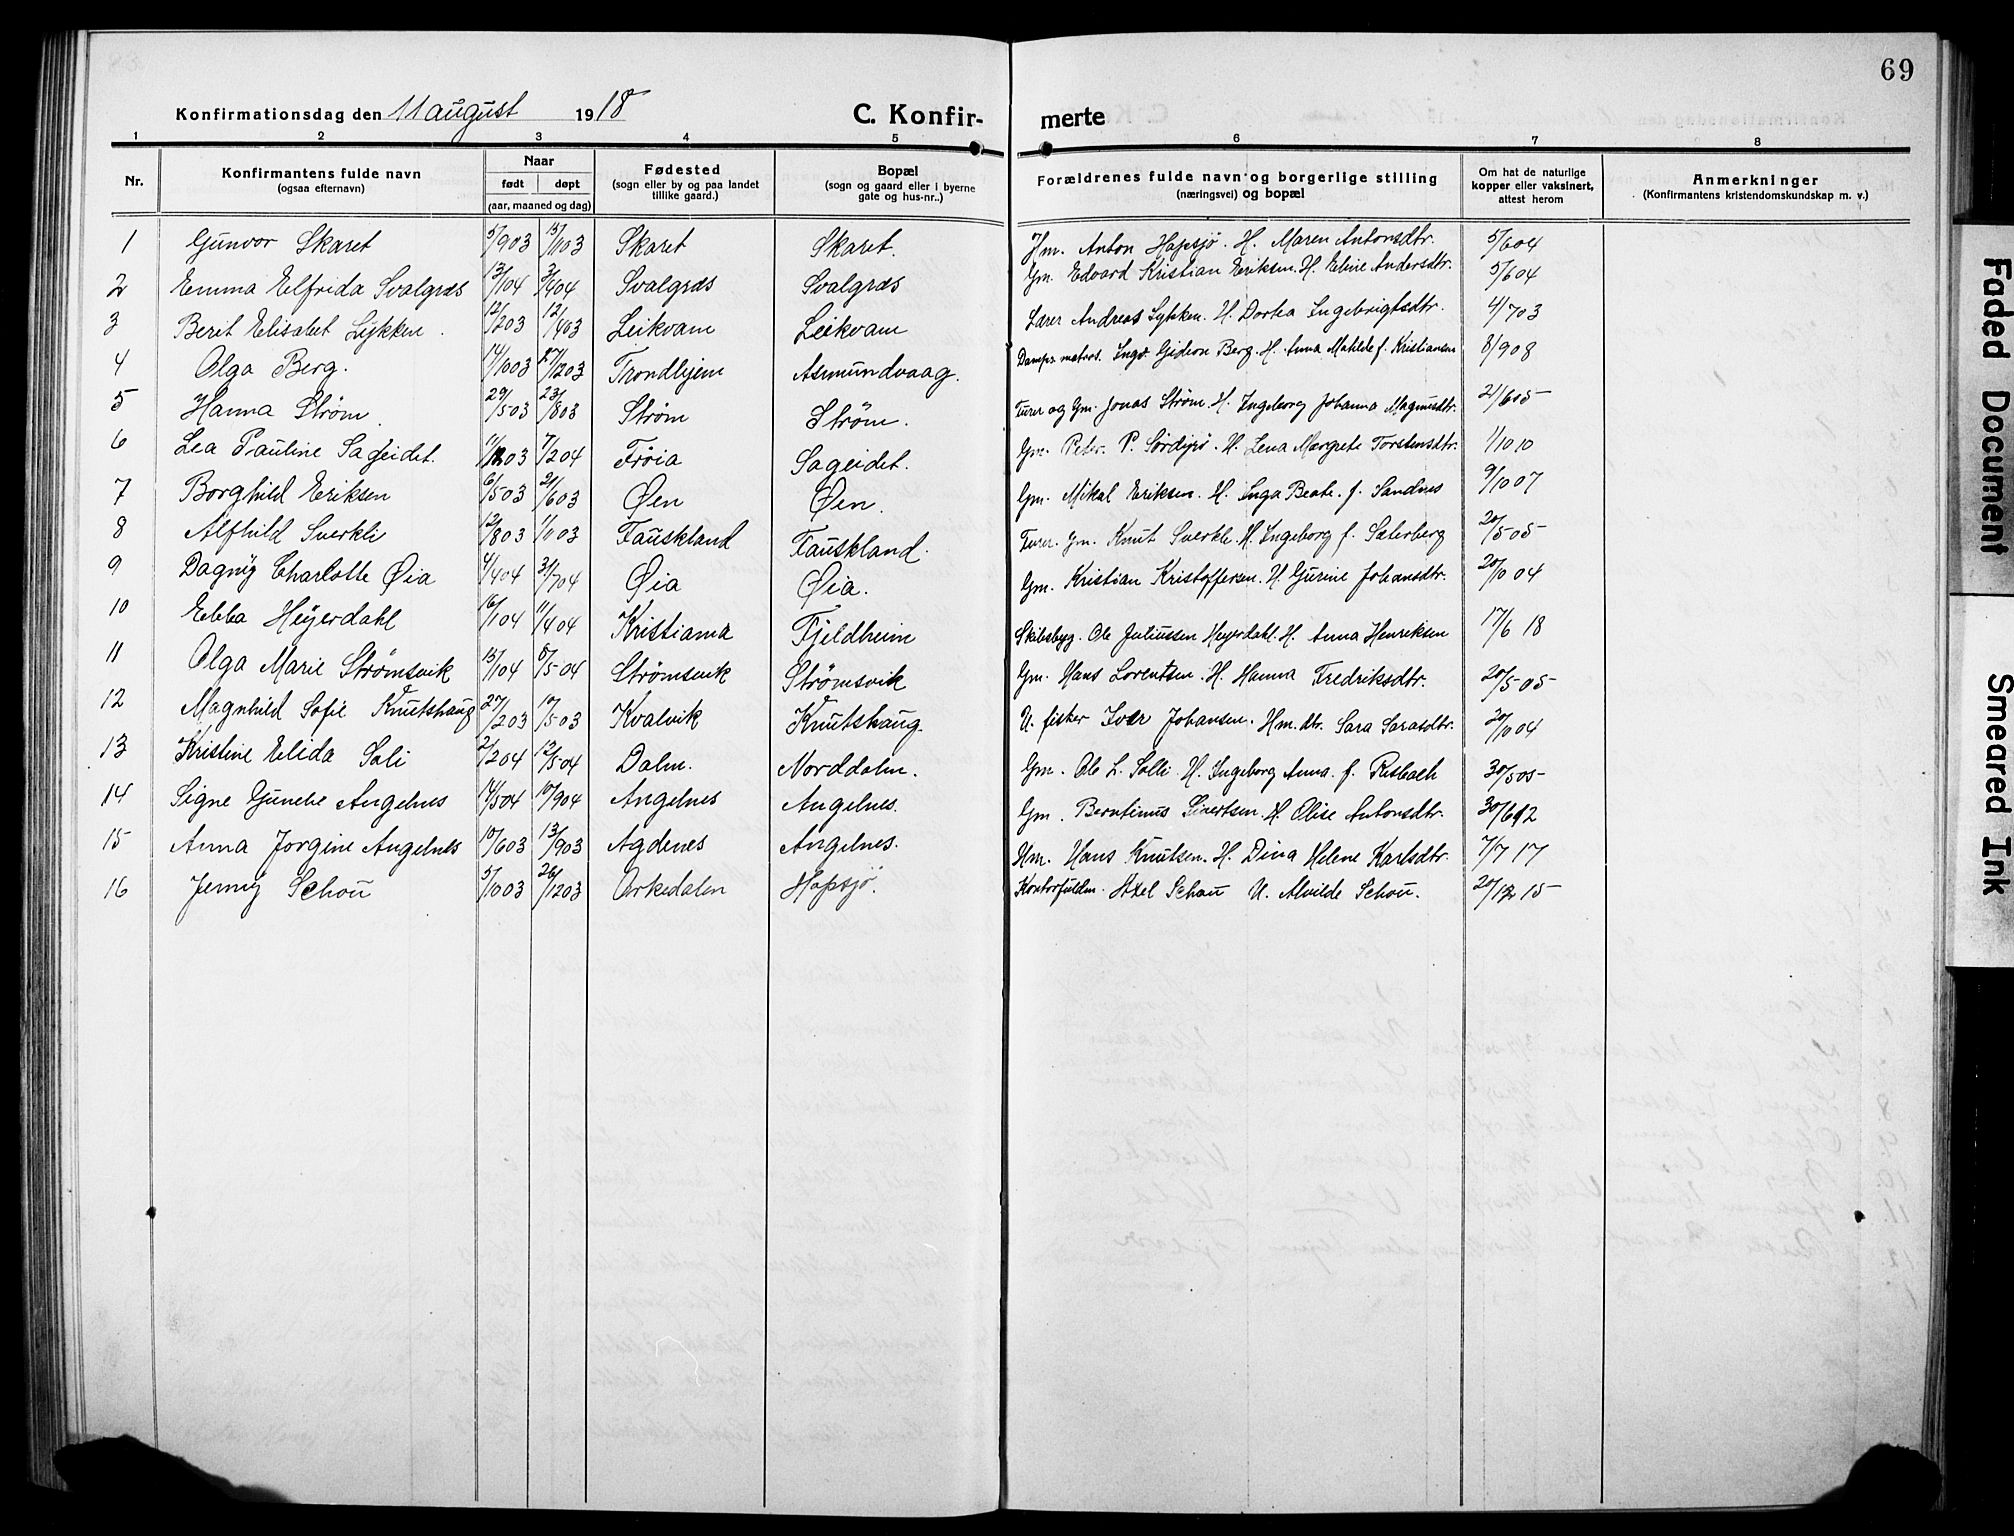 69
Konfirmationsdag den 11 august 1918
C. Konfir-
merte
1 2 3 4 5 6 7 8
Nr.
Konfirmantens fulde navn
(ogsaa efternavn)
Naar
født døpt
(aar, maaned og dag)
Fødested
(sogn eller by og paa landet
tillike gaard.)
Bopæl
(sogn og gaard eller i byerne
gate og hus-nr..)
Forældrenes fulde navn og borgerlige stilling
(næringsvei) og bopæl
Om hat de naturlige
kopper eller vaksinert,
attest herom
Anmerkninger
(Konfirmantens kristendomskundskap m. v.)
1 Gunvor Skaret 5/903 15/1103 Skaret Skaret. Hm. Anton Hopsjø. H. Maren Antonsdtr. 5/604
2 Emma Elfrida Svalgræs 13/104 3/404 Svalgræs Svalgræs Gm. Edvard Kristian Eriksen. H. Eline Andersdtr. 5/604
3 Berit Elisabet Lykken. 12/203 12/403 Leikvam Leikvam Lærer Andreas Lykken. H. Dortea Ingebrigtsdtr. 4/703
4 Olga Berg. 14/1003 27/203 Trondhjem Asmundvaag. Damps. matros. Ingv. Gideon Berg. H. Anna Matilde f. Kristiansen 8/908
5 Hanna Strøm 29/503 23/803 Strøm Strøm. Furer og Gm. Jonas Strøm. H. Ingeborg Johanna Magnusdtr. 21/605
6 Lea Pauline Sageidet. 11/1203 7/204 Frøia Sageidet. Gm. Peter P. Sørdijsø. H. Lena Margrete Torstensdtr. 1/10 10
7 Borghild Eriksen 6/503 21/603 Øen Øen. Gm. Mikal Eriksen. H. Inga Beate. f. Sandnes 9/1007
8 Alfhild Sverkli 12/803 1/1103 Fauskland Fauskland. Furer. Gm. Knut Sverkli. H. Ingeborg f. Sæterberg 20/505
9 Dagny Charlotte Øia 4/404 31/704 Øia Øia. Gm. Kristian Kristoffersen. H. Gurine Johansdtr. 20/1004
10 Ebba Heyerdahl 16/104 11/404 Kristiania Fjeldheim Skibsbyg. Ole Juliussen Heyerdahl. H. Anna Henriksen 17/6 18
11 Olga Marie Strømsvik 15/104 8/504 Strømsvik Strømsvik Gm. Hans Lorentsen. H. Hanna Fredriksdtr. 20/505
12 Magnhild Sofie Knutshaug 27/203 10/503 Kvalvik Knutshaug. U. fisker Iver Johansen. Hm. dtr. Sara Sarasdtr. 20/1004
13 Kristine Elida Soli 2/204 12/504 Dalm. Norddalm. Gm. Ole L. Solli. H. Ingeborg Anna. f. Risbach 30/505
14 Signe Gunelie Angelnes 14/504 10/904 Angelnes Angelnes. Gm. Berntinus Sivertsen. H. Olise Antonsdtr. 30/612
15 Anna Jorgine Angelnes 10/603 13/903 Agdenes Angelnes. Hm. Hans Knutsen. H. Dina Helene Karlsdtr. 7/7 17
16 Jenny Schou 5/1003 26/1203 Orkedalen Hopsjø. Kontorfuldm. Axel Schou U. Alvilde Schou. 20/12 15
Faded Document
Smeared Ink